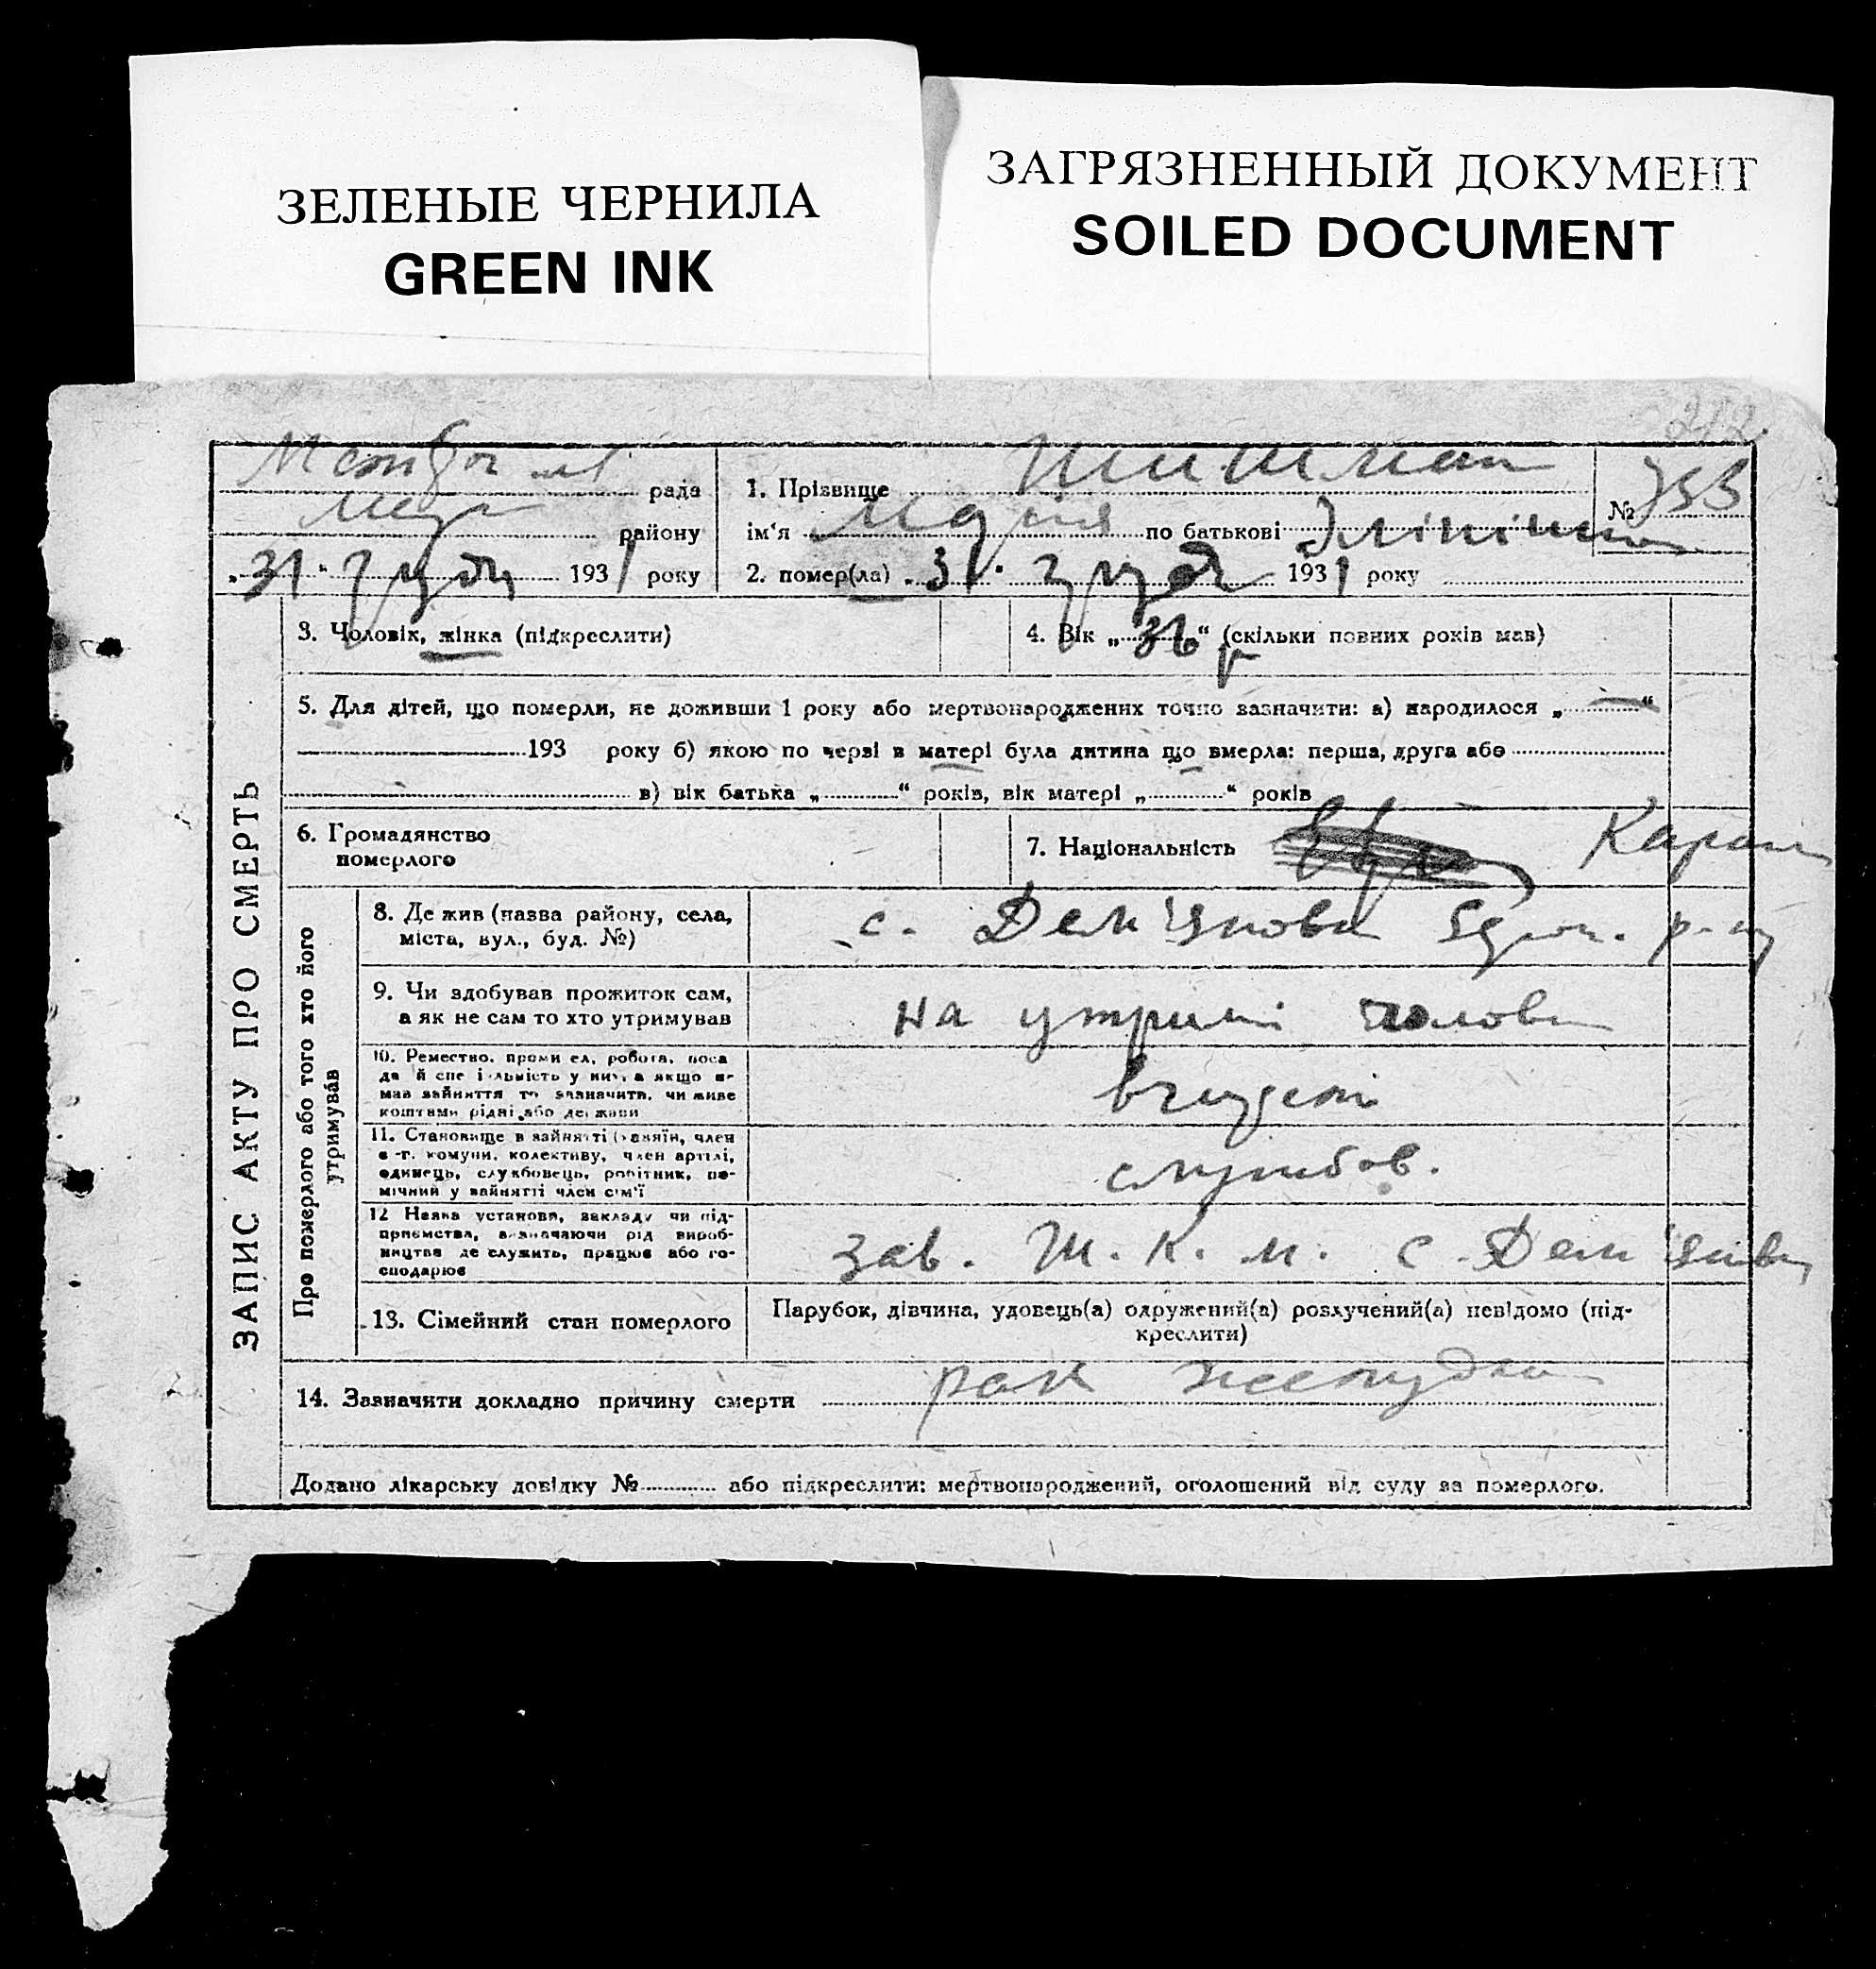 ЗЕЛЕНЫЕ ЧЕРНИЛА
GREEN INK
ЗАГРЯЗНЕННЫЙ ДОКУМЕНТ
SOILED DOCUMENT
212.
рада
району
31. грудн 1931 року
1. Прізвище Шишман
№
ім‘я Марія по батькові
2. помер(ла) 31. груд 1931 року
ЗАПИС АКТУ ПРО СМЕРТЬ
3. Чоловік, жінка (підкреслити)
4. Вік „36“ (скільки повних років мав)
5. Для дітей, що померли, не доживши 1 року або мертвонароджених точно зазначити: а) народилося „—“
193 року б) якою по черзі в матері була дитина що вмерла: перша, друга або
в) вік батька „ “ років, вік матері „ “ років
6. Громадянство
померлого
7. Національність Караїм
Про померлого або того хто його
утримував
8. Де жив (назва району, села,
міста, вул., буд. №)
с. Дем'яновка р-ну
9. Чи здобував прожиток сам,
а як не сам то хто утримував
на утрим чолов
10. Ремество, промисел, робота, поса
да й спеціяльність у них, а якщо не
мав зайняття то зазначити, чи живе
коштами рідні або держави
11. Становище в зайнятті (хазяїн, член
с.-г. комуни, колективу, член артілі,
одинець, службовець, робітник, по-
мічний у зайнятті член сім'ї
службов.
12 Назва установи, закладу чи під-
приємства, визначаючи рід вироб-
ництва де служить, працює або го-
сподарює
зав. Ш. К. М. с. Дем'янівк
13. Сімейний стан померлого
Парубок, дівчина, удовець(а) одружений(а) розлучений(а) невідомо (під-
креслити)
14. Зазначити докладно причину смерти рак желудка
Додано лікарську довідку № або підкреслити: мертвонароджений, оголошений від суду за померлого.